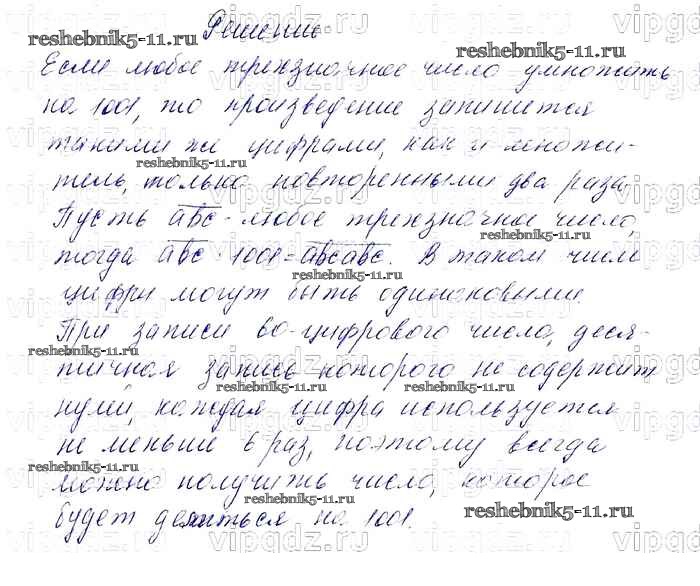 Решение
reshebnik5-11.ru
reshebnik5-11.ru
Если любое трехзначное число умножать
на 1001, то произведение запишется
такими же цифрами, как и множи-
reshebnik5-11.ru
тель, только повторенными два раза.
Пусть abc - любое трехзначное число,
reshebnik5-11.ru
тогда abc · 1001 = abcabc. В таком числе
reshebnik5-11.ru
цифры могут быть одинаковыми.
При записи 60-цифрового числа, деся-
reshebnik5-11.ru
тичная запись которого не содержит
reshebnik5-11.ru
reshebnik5-11.ru
нулей, каждая цифра используется
не меньше 6 раз, поэтому всегда
reshebnik5-11.ru
можно получить число, которое
reshebnik5-11.ru
reshebnik5-11.ru
будет делиться на 1001.
vipgdz.ru